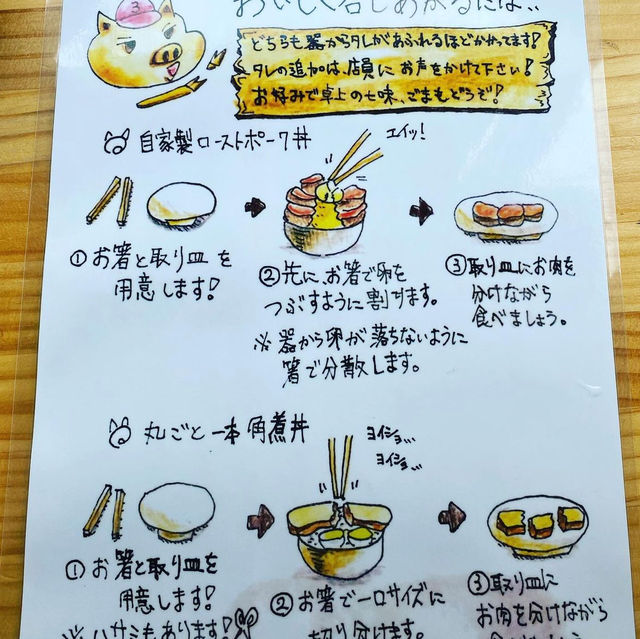 おいしく召しあがるには..
3
どちらも器からタレがあふれるほどかかってます!
タレの追加は、店員に お声をかけて下さい!
お好みで卓上の七味、ごまもどうぞ!
自家製ローストポーク丼
エイッ!
①お箸と取り皿を
用意します!
②先に、お箸で卵を
つぶすように割ります。
※器から卵が落ちないように
箸で分散します。
③取り皿にお肉を
分けながら
食べましょう。
丸ごと一本角煮丼
ヨイショ...
ヨイショ...
①お箸と取り皿を
用意します!
※ハサミもあります!
②お箸で一口サイズに
切り分けます。
③取り皿に
お肉を分けながら